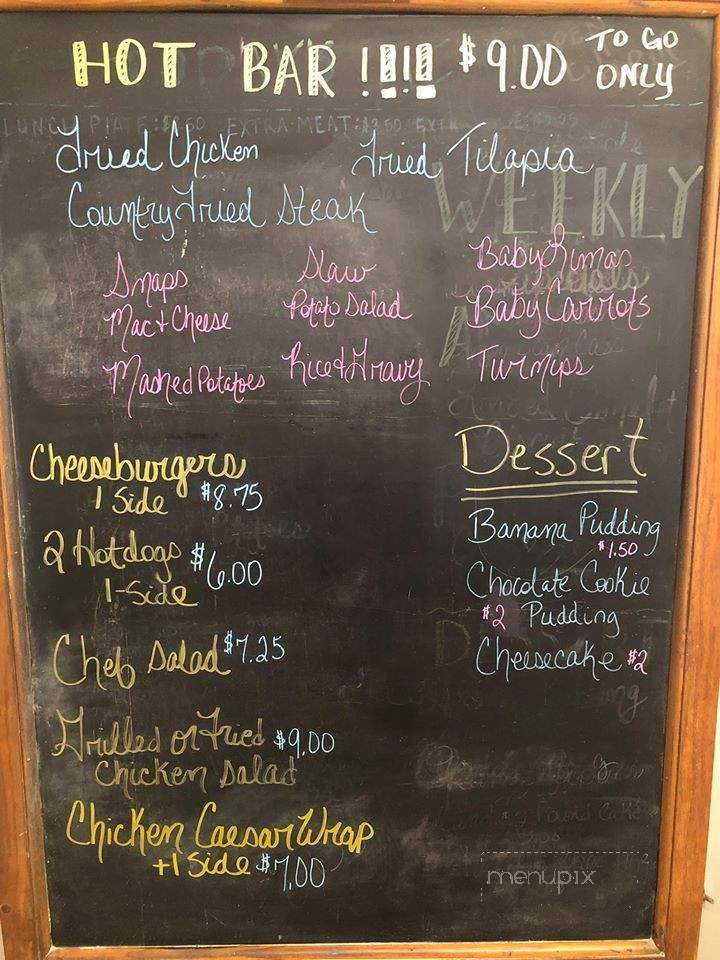 HOT BAR !!!! $9.00 TO GO ONLY
LUNCH PLATE: EXTRA MEAT:
Fried Chicken Fried Tilapia
Country Fried Steak
WEEKLY
Snaps Slaw Baby Limas
Mac + Cheese Potato Salad Baby Carrots
Mashed Potatoes Rice + Gravy Turnips
Cheeseburgers
1 Side $8.75
2 Hotdogs $6.00
1-Side
Chef Salad $7.25
Grilled or Fried $9.00
Chicken Salad
Chicken Caesar Wrap
+1 Side $7.00
Dessert
Banana Pudding
$1.50
Chocolate Cookie
$2 Pudding
Cheesecake $2
menupix